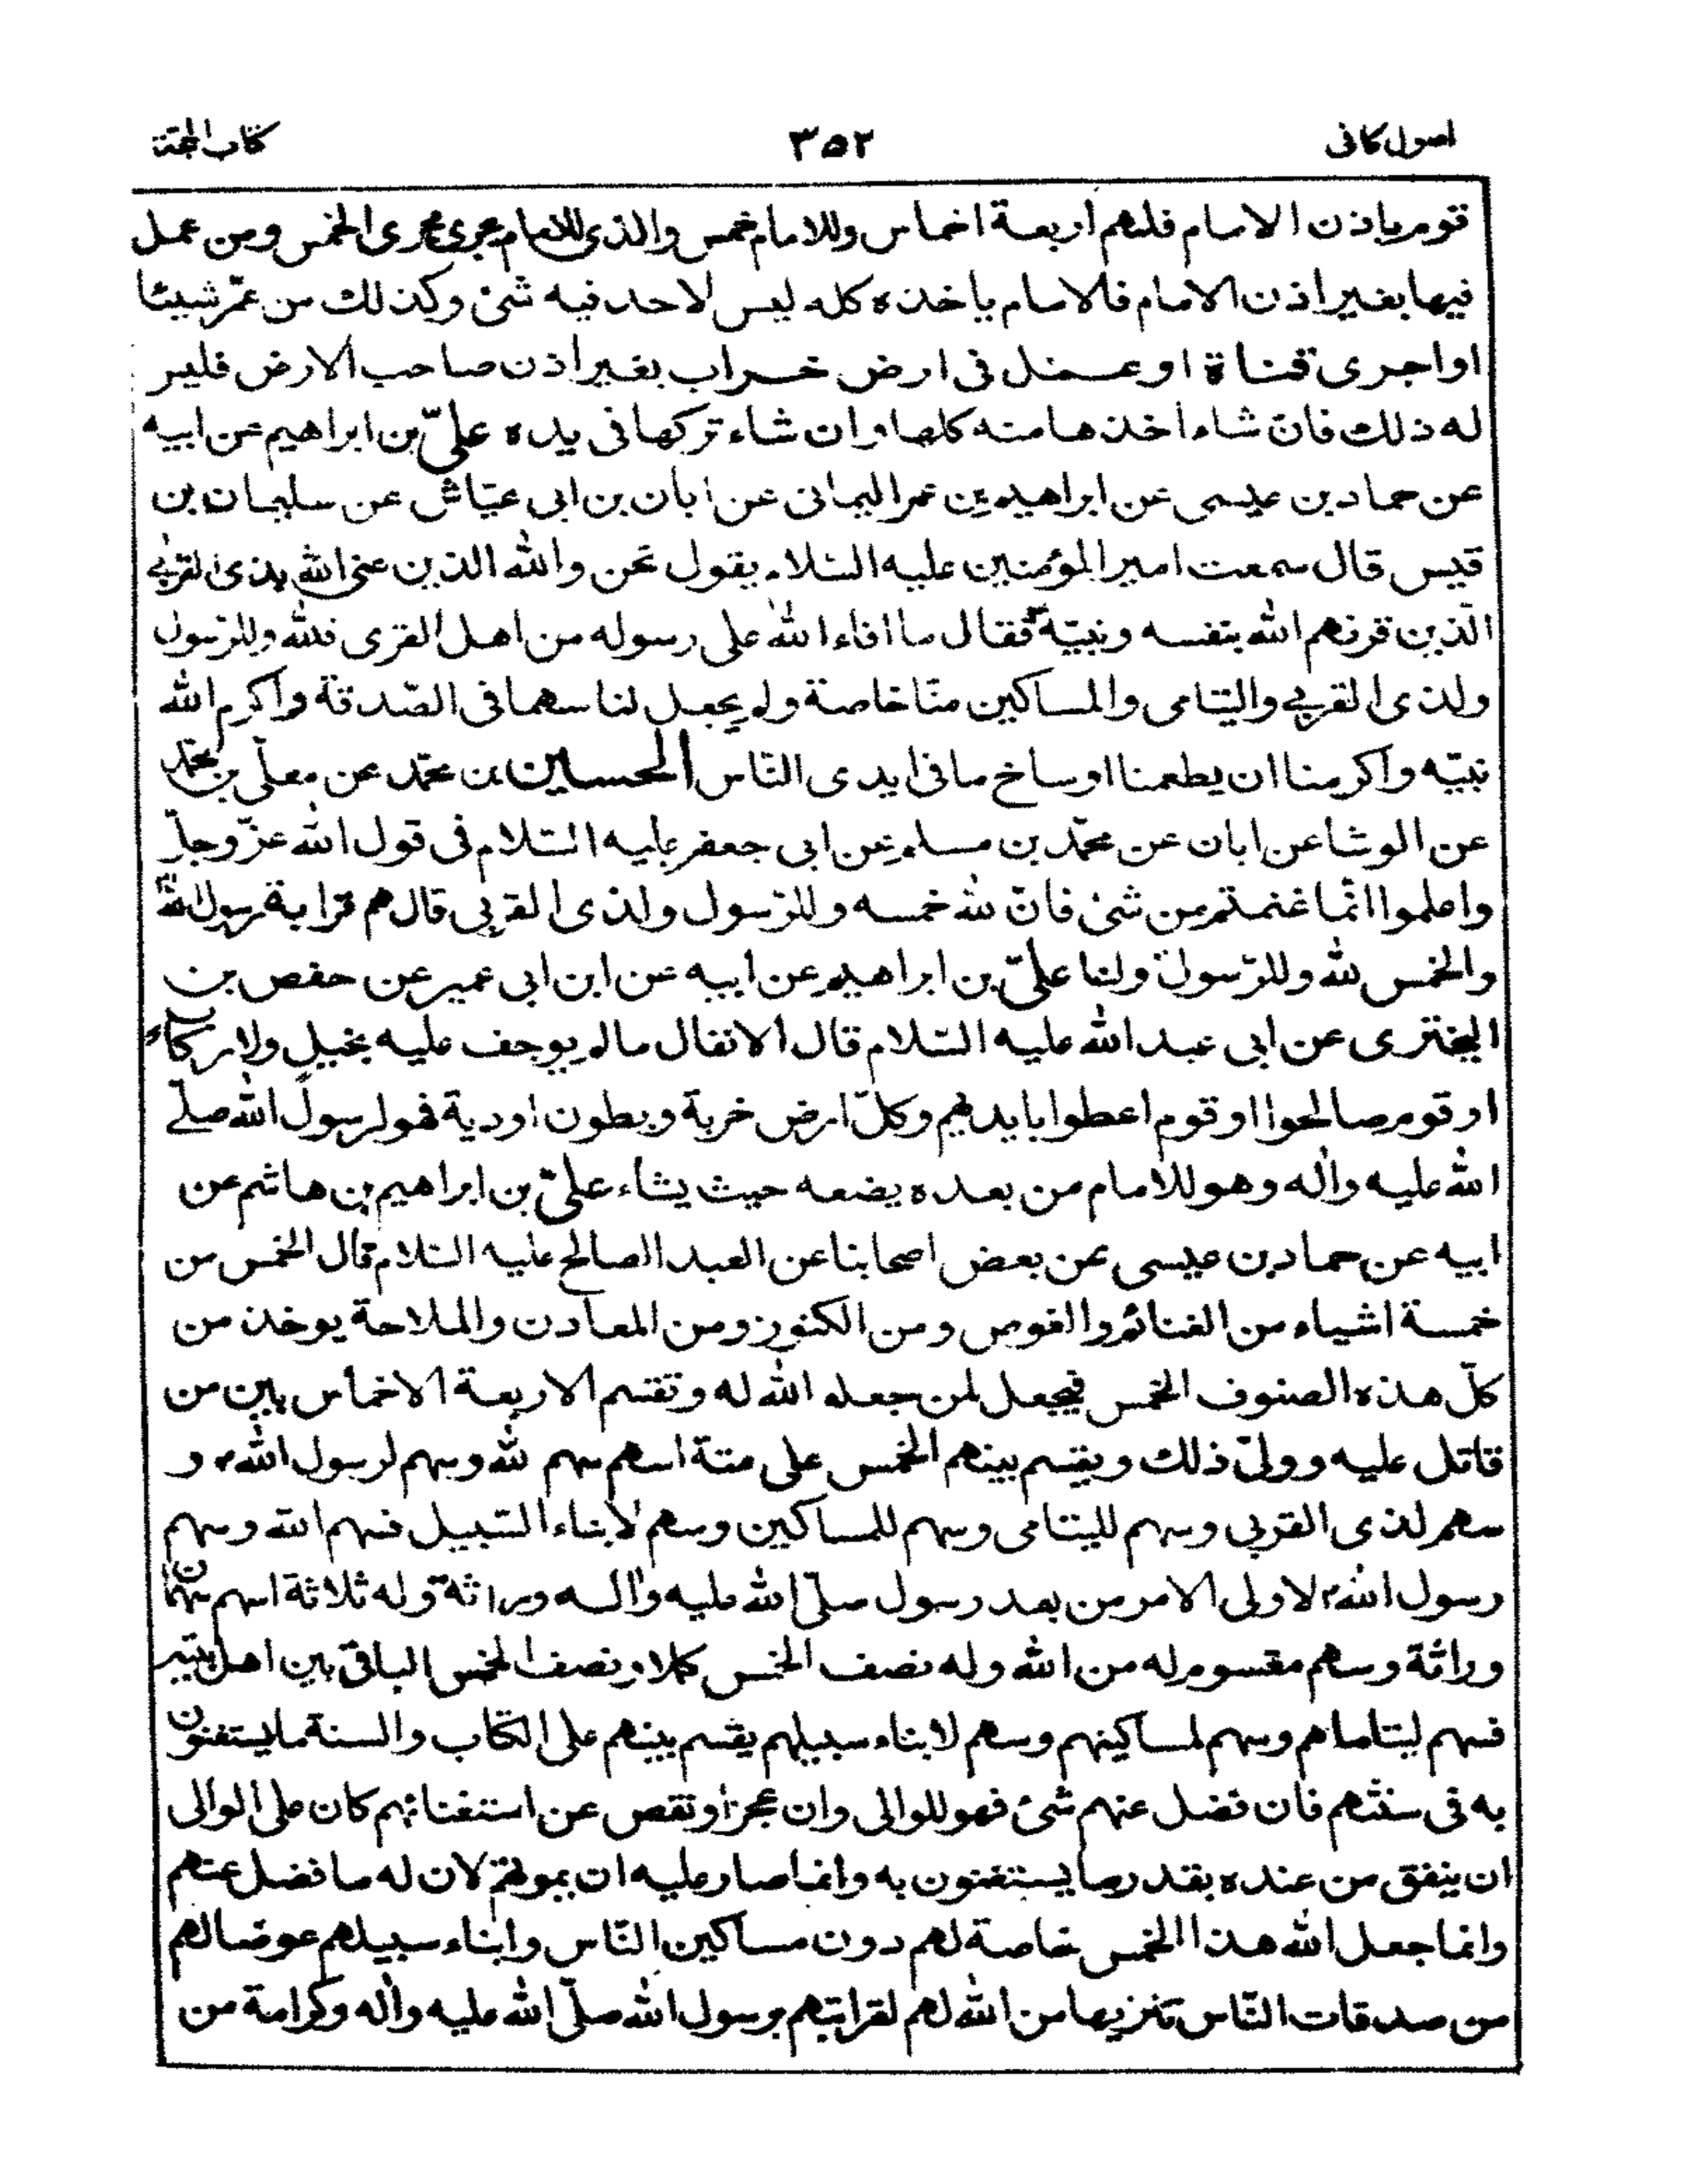 اصول كافى ٣٥٢ كتاب الحجة
قوم باذن الامام فلهم اربعة اخماس وللامام خمس والذى للامام يجرى مجرى الخمس ومن عمل
فيها بغير اذن الامام فالامام ياخذه كله ليس لاحد فيه شئ وكذلك من عمّر شيئا
او اجرى قناة او عمل فى ارض خراب بغير اذن صاحب الارض فليس
له ذلك فان شاء اخذها منه كلها وان شاء تركها فى يده علىّ بن ابراهيم عن ابيه
عن حماد بن عيسى عن ابراهيم بن عمر اليمانى عن ابان بن ابى عيّاش عن سليمان بن
قيس قال سمعت امير المؤمنين عليه السّلام يقول نحن والله الذين عنى الله بذى القربى
الّذين قرنهم الله بنفسه ونبيّه فقال ما افاء الله على رسوله من اهل القرى فلله وللرّسول
ولذى القربى واليتامى والمساكين منّا خاصة ولم يجعل لنا سهما فى الصّدقة واكرم الله
نبيّه واكرمنا ان يطعمنا اوساخ ما فى ايدى النّاس الحسين بن محمّد عن معلّى بن محمّد
عن الوشا عن ابان عن محمّد بن مسلم عن ابى جعفر عليه السّلام فى قول الله عزّ وجلّ
واعلموا انّما غنمتم من شئ فانّ لله خمسه وللرّسول ولذى القربى قال هم قرابة رسول الله
والخمس لله وللرّسول ولنا علىّ بن ابراهيم عن ابيه عن ابن ابى عمير عن حفص بن
البخترى عن ابى عبد الله عليه السّلام قال الانفال ما لم يوجف عليه بخيل ولا ركاب
او قوم صالحوا او قوم اعطوا بايديهم وكلّ ارض خربة وبطون اودية فهو لرسول الله صلّى
الله عليه واٰله وهو للامام من بعده يضعه حيث يشاء علىّ بن ابراهيم بن هاشم عن
ابيه عن حماد بن عيسى عن بعض اصحابنا عن العبد الصالح عليه السّلام قال الخمس من
خمسة اشياء من الغنائم والغوص ومن الكنوز ومن المعادن والملاحة يوخذ من
كلّ هذه الصنوف الخمس فيجعل لمن جعله الله له وتقسم الاربعة الاخماس بين من
قاتل عليه وولىّ ذلك ويقسم بينهم الخمس على ستة اسهم سهم لله وسهم لرسول الله و
سهم لذى القربى وسهم لليتامى وسهم للمساكين وسهم لابناء السّبيل فسهم الله وسهم
رسول الله لاولى الامر من بعد رسول صلّى الله عليه واٰله وراثة وله ثلاثة اسهم سهمان
وراثة وسهم مقسوم له من الله وله نصف الخمس كملا ونصف الخمس الباقى بين اهل بيته
فسهم ليتاماهم وسهم لمساكينهم وسهم لابناء سبيلهم يقسم بينهم على الكتاب والسنة ما يستغنون
به فى سنتهم فان فضل عنهم شئ فهو للوالى وان عجز او نقص عن استغنائهم كان على الوالى
ان ينفق من عنده بقدر ما يستغنون به وانما صار عليه ان يمونهم لان له ما فضل عنهم
وانما جعل الله هذا الخمس خاصة لهم دون مساكين النّاس وابناء سبيلهم عوضا لهم
من صدقات النّاس تنزيها من الله لهم لقرابتهم برسول الله صلّى الله عليه واٰله وكرامة من